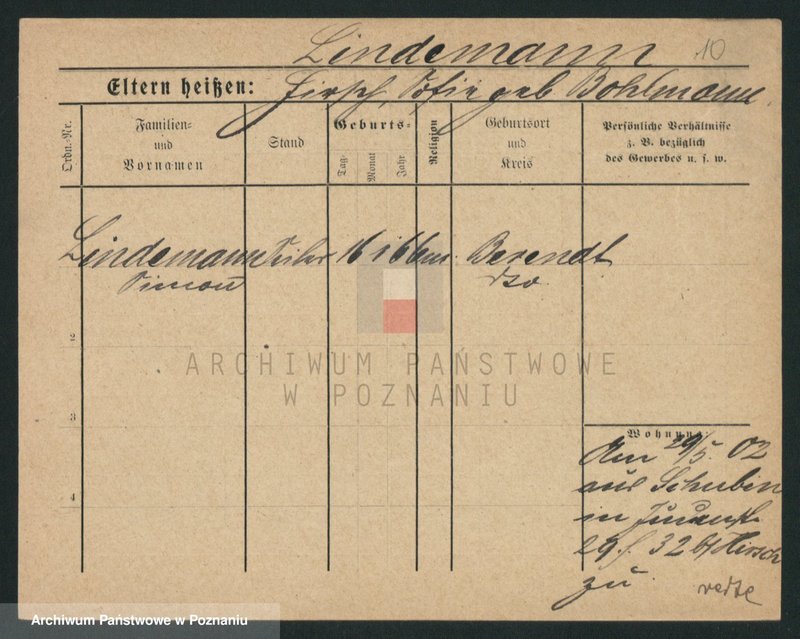 Lindemann 10
Eltern heißen: Hirsch, Sofie geb Bohlmann.
Ordn.-Nr.
Familien-
und
Vornamen
Stand
Geburts-
Tag
Monat
Jahr
Religion
Geburtsort
und
Kreis
Persönliche Verhältnisse
z. B. bezüglich
des Gewerbes u. s. w.
Lindemann 16 1 66 Berendt
Simon dto.
2
ARCHIWUM PAŃSTWOWE
W POZNANIU
3
Wohnung:
Am 29/5. 02
aus Schubin
in
4
29 f. 32 bt Hirsch
zu.
Archiwum Państwowe w Poznaniu